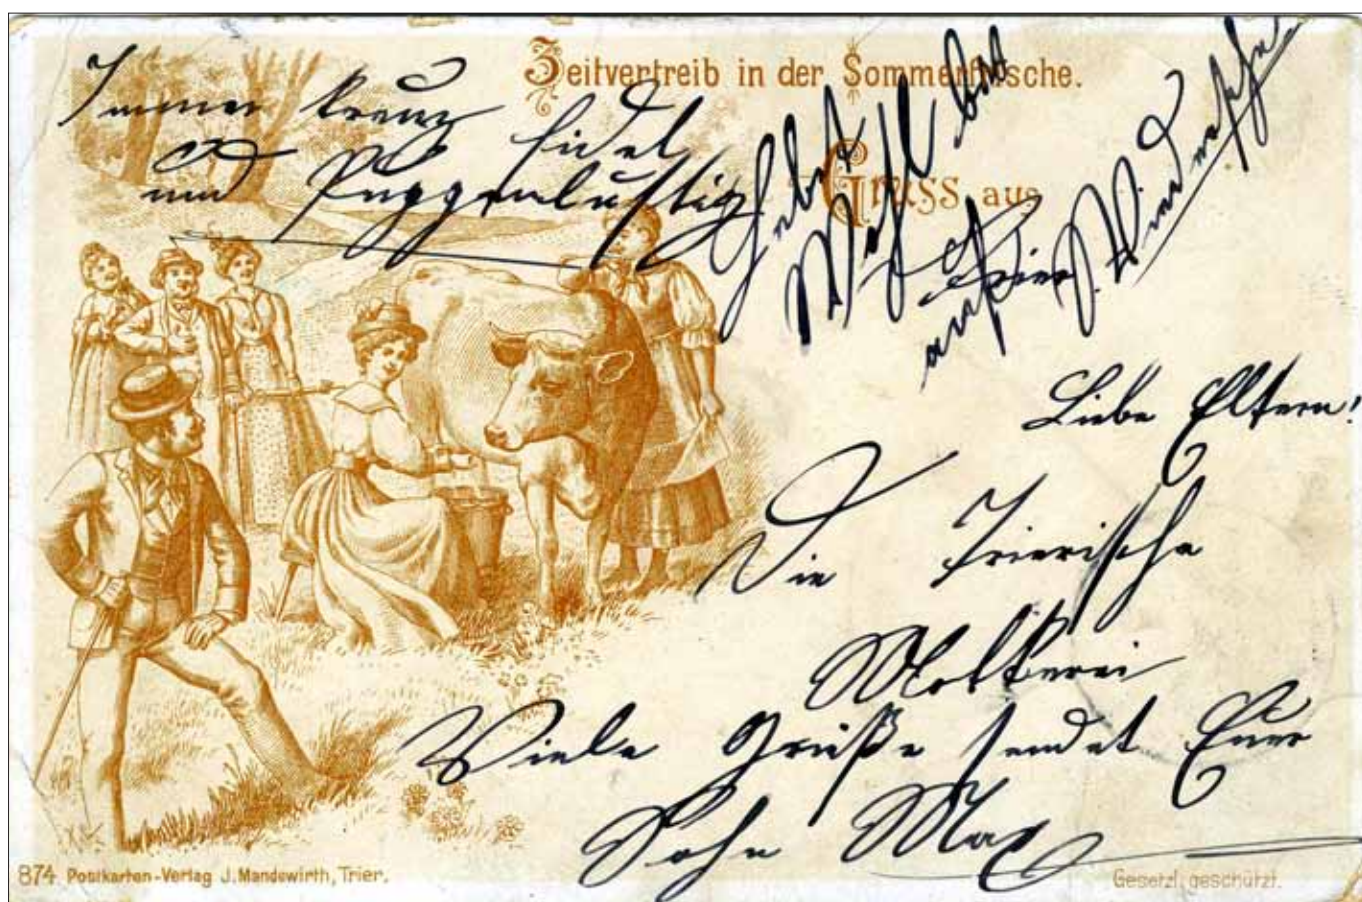 Zeitvertreib in der Sommerfrische.
Gruss aus
Immer kreuz
fidel
und Puggenlustig
Gehabt
Wohl bis
auf
Liebe Eltern!
Die Trierische
Molkerei
Viele Grüße sendet Euer
Sohn Max
874 Postkarten-Verlag J. Mandewirth, Trier.
Gesetzl. geschützt.